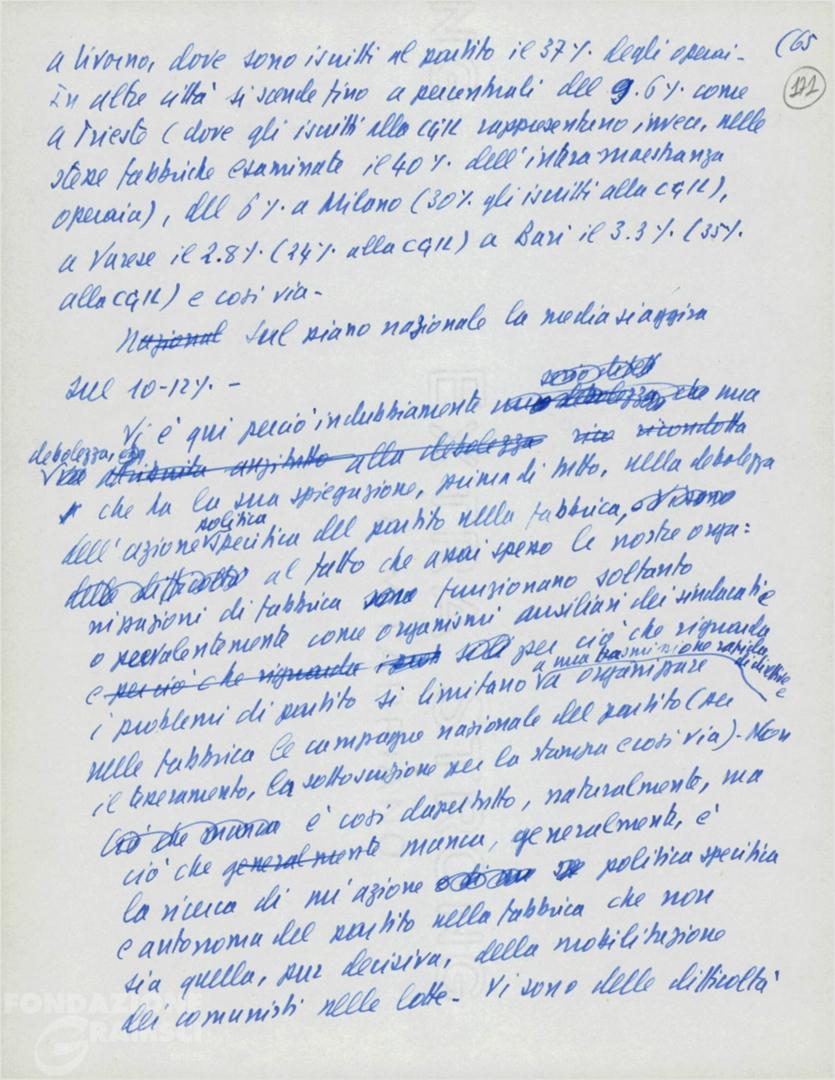 (65
121
a Livorno, dove sono iscritti al partito il 37%. degli operai -
In altre città si scende fino a percentuali del 9.6%. come
a Trieste (dove gli iscritti alla CGIL rappresentano invece, nelle
stesse fabbriche esaminate il 40%. dell'intera maestranza
operaia), del 6%. a Milano (30%. gli iscritti alla CGIL),
a Varese il 2.8%. (24%. alla CGIL) a Bari il 3.3%. (35%.
alla CGIL) e così via -
Nazional Sul piano nazionale la media si aggira
sul 10-12%. -
Vi è qui perciò indubbiamente debolezza che una
debolezza, alla debolezza ricondotta
che ha la sua spiegazione, prima di tutto, nella debolezza
politica
dell'azione specifica del partito nella fabbrica,
al fatto che assai spesso le nostre orga:
nizzazioni di fabbrica sono funzionano soltanto
o prevalentemente come organismi ausiliari dei sindacati e
e perciò che riguarda per ciò che riguarda
a una trasmissione rapida di direttive e
i problemi di partito si limitano a organizzare
nelle fabbrica le campagne nazionale del partito (per
il tesseramento, la sottoscrizione per la stampa e così via) - Non
Ciò che manca è così dappertutto, naturalmente, ma
ciò che generalmente manca, generalmente, è
la ricerca di un'azione politica specifica
e autonoma del partito nella fabbrica che non
sia quella, pur decisiva, della mobilitazione
dei comunisti nelle lotte - Vi sono delle difficoltà
FONDAZIONE
GRAMSCI